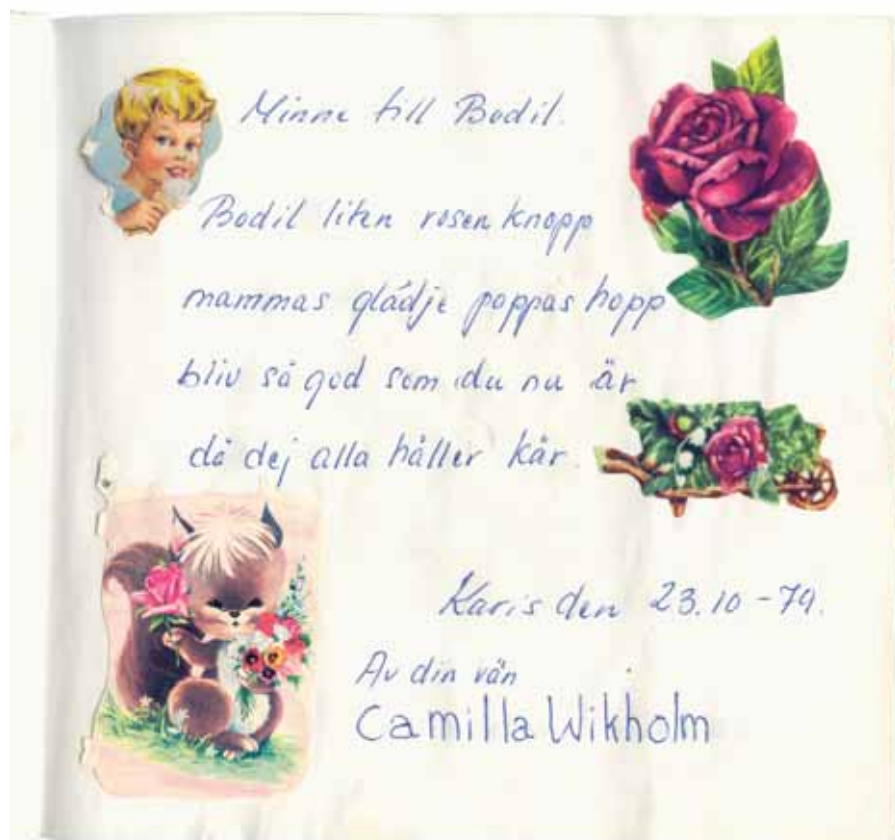 Minne till Bodil.
Bodil liten rosen knopp
mammas glädje pappas hopp
bliv så god som du nu är
då dej alla håller kär.
Karis den 23.10 -79.
Av din vän
Camilla Wikholm